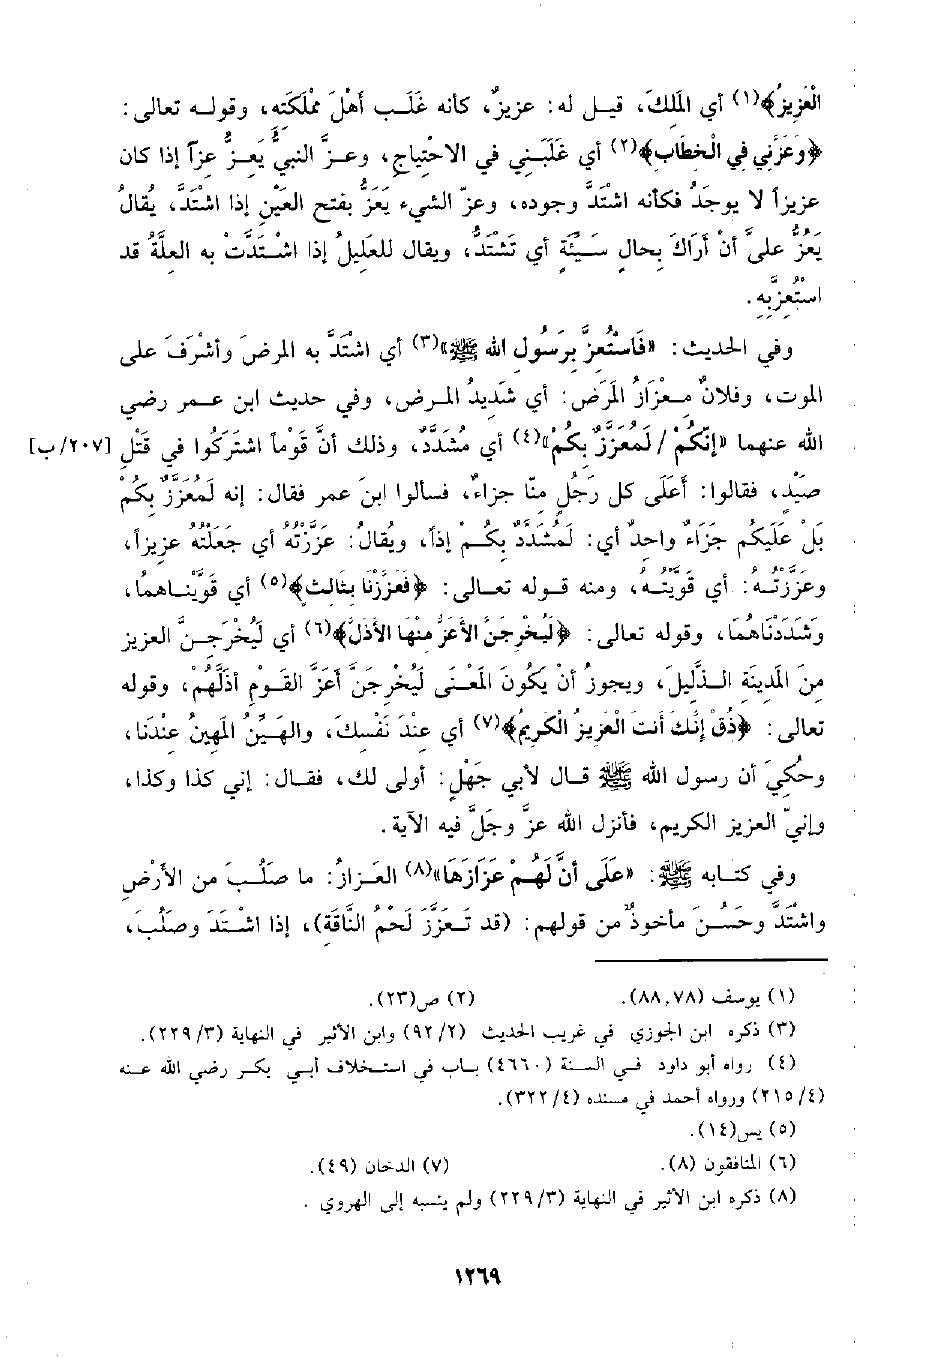 الْعَزِيزُ﴾(١) أي المَلِكَ، قيل له: عزيزٌ، كانه غَلَب أَهْلَ مملْكَتهِ، وقوله تعالى:
﴿وَعَزَّنِي فِي الْخِطَابِ﴾(٢) أي غَلَبَنِي في الاحْتِياجِ، وعزَّ النبيُّ يَعِزُّ عزاً إذا كان
عزيزاً لا يوجَدُ فكأنه اشتَدَّ وجوده، وعزّ الشيء يَعَزُّ بفتح العَيْنِ إذا اشتَدَّ، يقالُ
يَعُزُّ عليَّ أنْ أَرَاكَ بِحالٍ سَيِّئَةٍ أي تَشْتَدُّ، ويقال للعَليلُ إذا اشْتَدَّتْ به العِلَّةُ قد
استُعِزَّبِهِ.
وفي الحديث: «فَاسْتُعِزَّ بِرَسُولِ الله ﷺ»(٣) أي اشتَدَّ به المرضَ وأشْرَفَ على
الموتِ، وفلانٌ مِعْزَازُ المَرَضِ: أي شَدِيدُ المرضِ، وفي حديث ابن عمر رضي
الله عنهما «إنّكُمْ / لَمُعَزَّزٌ بِكُمْ»(٤) أي مُشَدَّدٌ، وذلك أنَّ قَوْماً اشتَرَكُوا في قَتْلِ [٢٠٧/ب]
صَيْدٍ، فقالوا: أَعَلَى كل رَجُلٍ مِنّا جزاءٌ، فسألوا ابنَ عمر فقال: إنه لَمُعَزَّزٌ بِكُمْ
بَلْ عَلَيْكُم جَزَاءٌ واحدٌ أي: لَمُشَدَّدٌ بكُمْ إذاً، ويقُالُ: عزَّزْتُهُ أي جَعَلْتُهُ عزيزاً،
وعَزَّزْتُهُ: أي قَوَّيْتُهُ، ومنه قوله تعالى: ﴿فَعَزَّزْنَا بِثَالِثٍ﴾(٥) أي قَوَّيْناهما،
وشَدَدْنَاهُمَا، وقوله تعالى: ﴿لَيُخْرِجَنَّ الأَعَزُّ مِنْهَا الأَذَلَّ﴾(٦) أي لَيُخْرَجَنَّ العزيز
مِنَ المَدينَةِ الذَّليلَ، ويجوزُ أنْ يَكُونَ المَعْنَى لَيُخْرِجَنَّ أَعَزَّ القَوْمِ أَذَلَّهُمْ، وقوله
تعالى: ﴿ذُقْ إِنَّكَ أَنتَ الْعَزِيزُ الْكَرِيمُ﴾(٧) أي عِنْدَ نَفْسِكَ، والهَيِّنُ المَهِينُ عِنْدَنا،
وحُكِيَ أن رسول الله ﷺ قال لأبي جَهْلٍ: أولى لك، فقال: إني كذا وكذا،
وإنيّ العزيز الكريم، فأنزل الله عزَّ وجَلَّ فيه الآية.
وفي كتابه ﷺ: «عَلَى أنَّ لَهُمْ عَزَازَهَا»(٨) العَزازُ: ما صَلُبَ من الأَرْضِ
واشتَدَّ وحَسُنَ مأخوذٌ من قولهم: (قد تَعزَّزَ لَحْمُ النَّاقَةِ)، إذا اشْتَدَ وصَلُبَ،
(١) يوسف (٨٨،٧٨). (٢) ص(٢٣).
(٣) ذكره ابن الجوزي في غريب الحديث (٩٢/٢) وابن الأثير في النهاية (٢٢٩/٣).
(٤) رواه أبو داود في السنة (٤٦٦٠) باب في استخلاف أبي بكر رضي الله عنه
(٢١٥/٤) ورواه أحمد في مسنده (٣٢٢/٤).
(٥) يس(١٤).
(٦) المنافقون (٨). (٧) الدخان (٤٩).
(٨) ذكره ابن الأثير في النهاية (٢٢٩/٣) ولم ينسبه إلى الهروي .
١٢٦٩